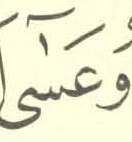 وَعَسَىٰٓ